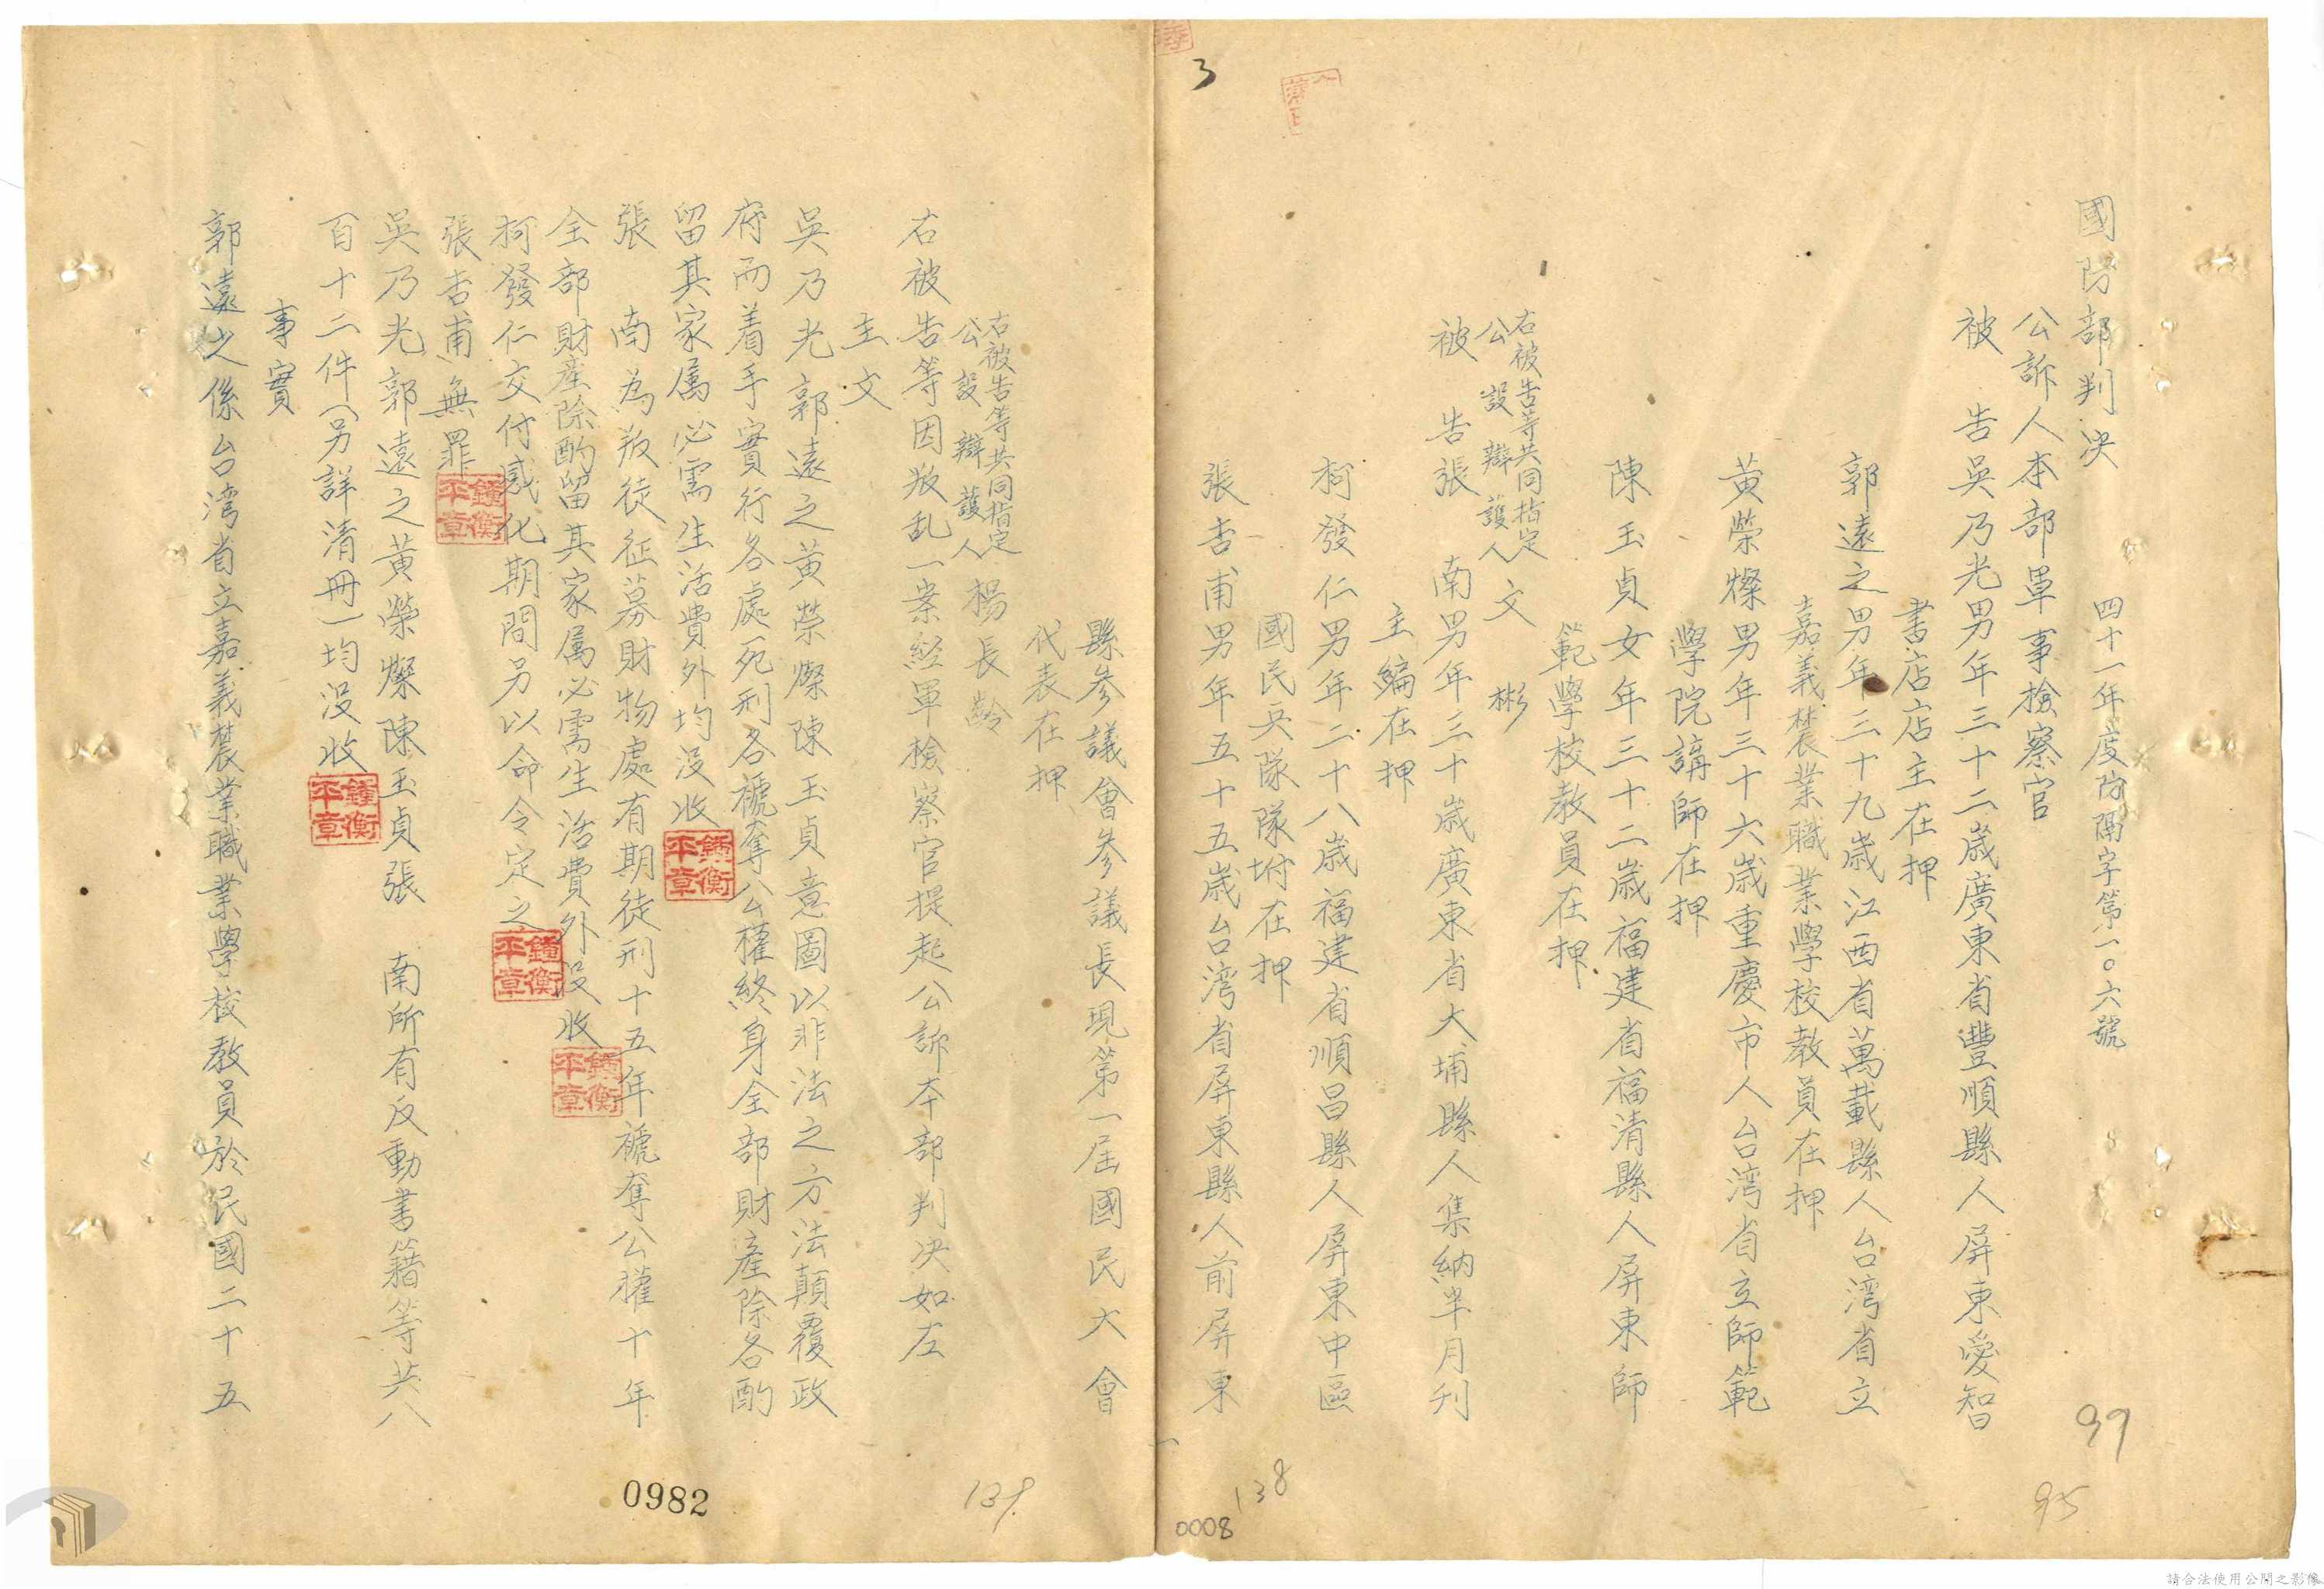 國防部判決　四十一年度防隔字第一〇六號
公訴人本部軍事檢察官
被告吳乃光男年三十二歲廣東省豐順縣人屏東愛智
書店店主在押
郭遠之男年三十九歲江西省萬載縣人台灣省立
嘉義農業職業學校教員在押
黃榮燦男年三十六歲重慶市人台灣省立師範
學院講師在押
陳玉貞女年三十二歲福建省福清縣人屏東師
範學校教員在押
右被告等共同指定
公設辯護人文彬
被告張　南男年三十歲廣東省大埔縣人集納半月刊
主編在押
柯發仁男年二十八歲福建省順昌縣人屏東中區
國民兵隊隊附在押
張吉甫男年五十五歲台灣省屏東縣人前屏東
3
99
95
138
0008
縣參議會參議長現第一屆國民大會
代表在押
右被告等共同指定
公設辯護人楊長齡
右被告等因叛乱一案經軍檢察官提起公訴本部判決如左
主文
吳乃光郭遠之黃榮燦陳玉貞意圖以非法之方法顛覆政
府而着手實行各處死刑各褫奪公權終身全部財產除各酌
留其家屬必需生活費外均沒收
張　南為叛徒征募財物處有期徒刑十五年褫奪公權十年
全部財產除酌留其家屬必需生活費外沒收
柯發仁交付感化期間另以命令定之
張吉甫無罪
吳乃光郭遠之黃榮燦陳玉貞張　南所有反動書籍等共八
百十二件（另詳清冊）均沒收
事實
郭遠之係台灣省立嘉義農業職業學校教員於民國二十五
鍾衡平章
鍾衡平章
鍾衡平章
鍾衡平章
鍾衡平章
0982
139
請合法使用公開之影像